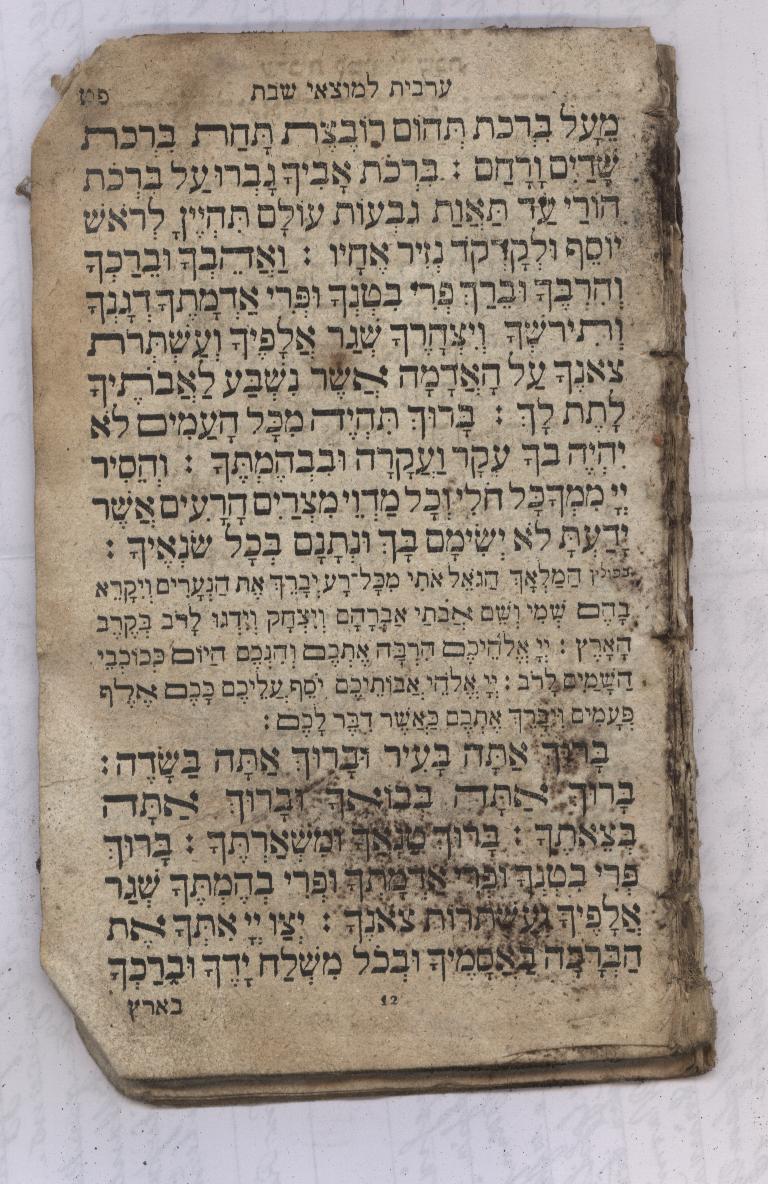 ערבית למוצאי שבת פט
מֵעָל בִּרְכֹת תְּהוֹם רוֹבֶצֶת תָּחַת בִּרְכֹת
שָׁדַיִם וָרָחַם : בִּרְכֹת אָבִיךָ גָבְרוּ עַל בִּרְכֹת
הוֹרַי עַד תַּאֲוַת גִּבְעוֹת עוֹלָם תִּהְיֶיןָ לְרֹאשׁ
יוֹסֵף וּלְקָדְקֹד נְזִיר אֶחָיו : וַאֲהֵבְךָ וּבֵרַכְךָ
וְהִרְבֶּךָ וּבֵרַךְ פְּרִי בִטְנְךָ וּפְרִי אַדְמָתֶךָ דְגָנְךָ
וְתִירשְׁךָ וְיִצְהָרֶךָ שְׁגַר אֲלָפֶיךָ וְעַשְׁתְּרֹת
צֹאנֶךָ עַל הָאֲדָמָה אֲשֶׁר נִשְׁבַּע לַאֲבֹתֶיךָ
לָתֶת לָךְ : בָּרוּךְ תִּהְיֶה מִכָּל הָעַמִּים לֹא
יִהְיֶה בְךָ עָקָר וַעֲקָרָה וּבִבְהֶמְתֶּךָ : וְהֵסִיר
יְיָ מִמְּךָ כָּל חֹלִי וְכָל מַדְוֵי מִצְרַיִם הָרָעִים אֲשֶׁר
יָדַעְתָּ לֹא יְשִׂימָם בָּךְ וּנְתָנָם בְּכָל שׂנְאֶיךָ :
בפולין הַמַּלְאָךְ הַגֹּאֵל אֹתִי מִכָּל־רָע יְבָרֵךְ אֶת הַנְּעָרִים וְיִקָּרֵא
בָהֶם שְׁמִי וְשֵׁם אֲבֹתַי אַבְרָהָם וְיִצְחָק וְיִדְגּוּ לָרֹב בְּקֶרֶב
הָאָרֶץ : יְיָ אֱלֹהֵיכֶם הִרְבָּה אֶתְכֶם וְהִנְּכֶם הַיּוֹם כְּכוֹכְבֵי
הַשָּׁמַיִם לָרֹב : יְיָ אֱלֹהֵי אֲבוֹתֵיכֶם יֹסֵף עֲלֵיכֶם כָּכֶם אֶלֶף
פְּעָמִים וִיבָרֵךְ אֶתְכֶם כַּאֲשֶׁר דִּבֶּר לָכֶם :
בָּרוּךְ אַתָּה בָּעִיר וּבָרוּךְ אַתָּה בַּשָּׂדֶה :
בָּרוּךְ אַתָּה בְּבוֹאֶךָ וּבָרוּךְ אַתָּה
בְּצֵאתֶךָ : בָּרוּךְ טַנְאֲךָ וּמִשְׁאַרְתֶּךָ : בָּרוּךְ
פְּרִי בִטְנְךָ וּפְרִי אַדְמָתְךָ וּפְרִי בְהֶמְתֶּךָ שְׁגַר
אֲלָפֶיךָ וְעַשְׁתְּרוֹת צֹאנֶךָ : יְצַו יְיָ אִתְּךָ אֶת
הַבְּרָכָה בַּאֲסָמֶיךָ וּבְכֹל מִשְׁלַח יָדֶךָ וּבֵרַכְךָ
12 בארץ